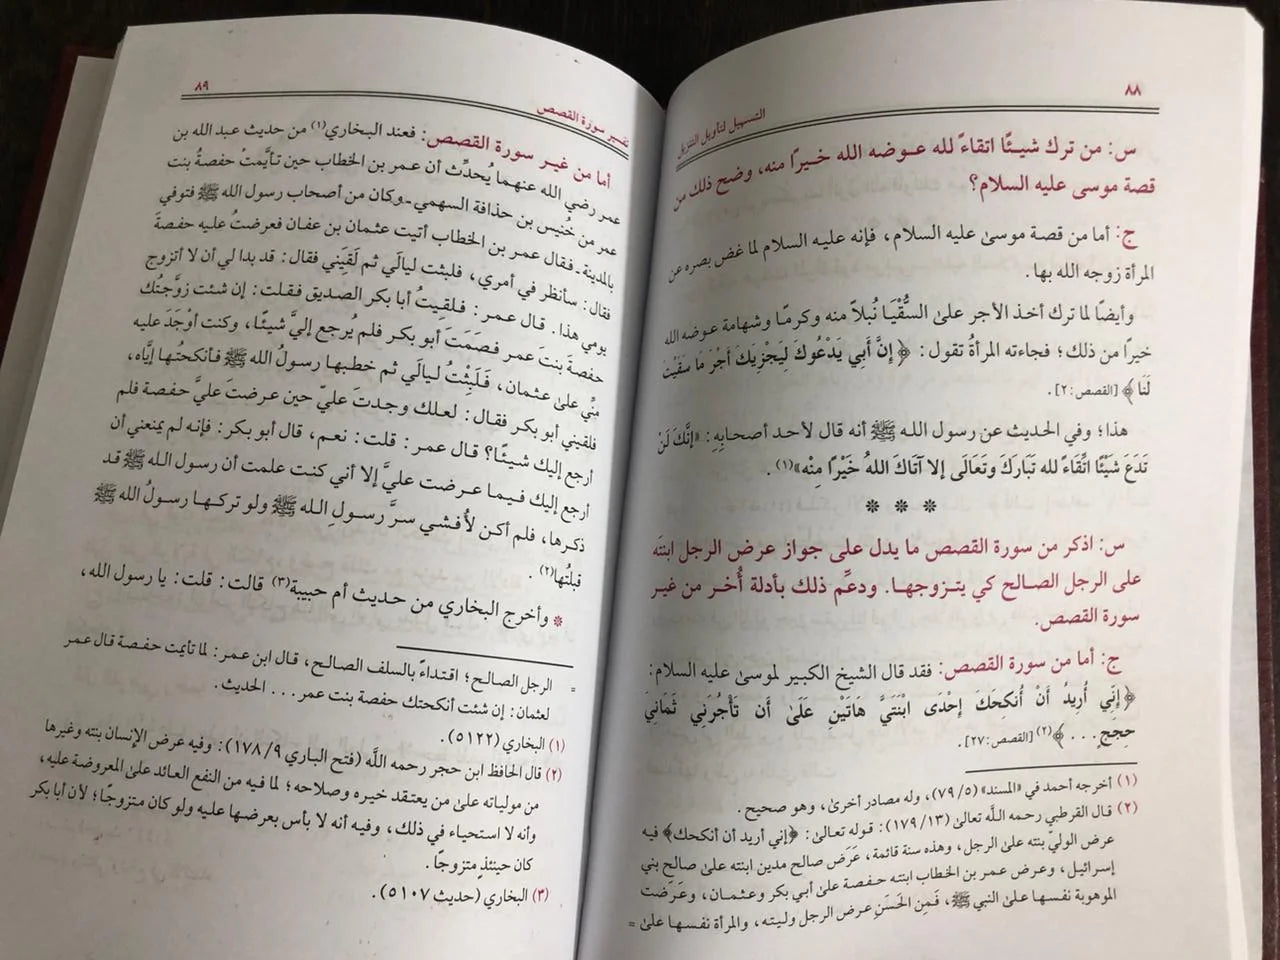 ٨٨
التسهيل لتأويل التنزيل
س: من ترك شيئًا اتقاءً لله عوضه الله خيرًا منه، وضح ذلك من
قصة موسى عليه السلام؟
ج: أما من قصة موسى عليه السلام، فإنه عليه السلام لما غض بصره عن
المرأة زوجه الله بها.
وأيضًا لما ترك أخذ الأجر على السُّقْيَا نُبلاً منه وكرمًا وشهامة عوضه الله
خيرًا من ذلك؛ فجاءته المرأةُ تقول: ﴿إِنَّ أَبِي يَدْعُوكَ لِيَجْزِيَكَ أَجْرَ مَا سَقَيْتَ
لَنَا﴾ [القصص:٢].
هذا؛ وفي الحديث عن رسول الله ﷺ أنه قال لأحد أصحابِهِ: «إِنَّكَ لَنْ
تَدَعَ شَيْئًا اتِّقَاءً لله تَبَارَكَ وَتَعَالَى إلا آتَاكَ اللهُ خَيْرًا مِنْه»(١).
* * *
س: اذكر من سورة القصص ما يدل على جواز عرض الرجل ابنتَه
على الرجل الصالح كي يتزوجها. ودعِّم ذلك بأدلة أُخر من غير
سورة القصص.
ج: أما من سورة القصص: فقد قال الشيخ الكبير لموسى عليه السلام:
﴿إِنِّي أُرِيدُ أَنْ أُنكِحَكَ إِحْدَى ابْنَتَيَّ هَاتَيْنِ عَلَىٰ أَن تَأْجُرَنِي ثَمَانِيَ
حِجَجٍ ...﴾(٢) [القصص:٢٧].
(١) أخرجه أحمد في «المسند» (٧٩/٥)، وله مصادر أخرى، وهو صحيح.
(٢) قال القرطبي رحمه اللَّه تعالى (١٧٩/١٣): قوله تعالى: ﴿إني أريد أن أنكحك﴾ فيه
عرض الوليّ بنته على الرجل، وهذه سنة قائمة، عَرَض صالح مدين ابنته على صالح بني
إسرائيل، وعرض عمر بن الخطاب ابنته حفصة على أبي بكر وعثمان، وعَرَضت
الموهوبة نفسها على النبي ﷺ، فَمِن الحَسَن عرض الرجل وليته، والمرأة نفسها على =
٨٩
تفسير سورة القصص
أما من غير سورة القصص: فعند البخاري(١) من حديث عبد الله بن
عمر رضي الله عنهما يُحدِّث أن عمر بن الخطاب حين تأيَّمتْ حفصةُ بنت
عمر من خُنيس بن حذافة السهمي - وكان من أصحاب رسول الله ﷺ فتوفي
بالمدينة - فقال عمر بن الخطاب أتيت عثمان بن عفان فعرضتُ عليه حفصة
فقال: سأنظر في أمري، فلبثت ليالَي ثم لَقِيَني فقال: قد بدا لي أن لا أتزوج
يومي هذا. قال عمر: فلقيتُ أبا بكر الصديق فقلت: إن شئت زوَّجتُك
حفصةَ بنتَ عمر فصَمَتَ أبو بكر فلم يُرجع إليَّ شيئًا، وكنت أوْجَدَ عليه
مِنِّي على عثمان، فَلَبِثْتُ ليالَي ثم خطبها رسولُ الله ﷺ فأنكحتُها إيَّاه،
فلقيني أبو بكر فقال: لعلك وجدتَ عليّ حين عرضتَ عليَّ حفصة فلم
أرجع إليك شيئًا؟ قال عمر: قلت: نعم، قال أبو بكر: فإنه لم يمنعني أن
أرجع إليك فيما عرضت عليَّ إلا أني كنت علمت أن رسول الله ﷺ قد
ذكرها، فلم أكن لأُفشي سرَّ رسولِ الله ﷺ ولو تركها رسولُ الله ﷺ
قبلتُها(٢).
* وأخرج البخاري من حديث أم حبيبة(٣) قالت: قلت: يا رسول الله،
= الرجل الصالح؛ اقتداءً بالسلف الصالح، قال ابن عمر: لما تأيمت حفصة قال عمر
لعثمان: إن شئت أنكحتك حفصة بنت عمر... الحديث.
(١) البخاري (٥١٢٢).
(٢) قال الحافظ ابن حجر رحمه اللَّه (فتح الباري ١٧٨/٩): وفيه عرض الإنسان بنته وغيرها
من مولياته على من يعتقد خيره وصلاحه؛ لما فيه من النفع العائد على المعروضة عليه،
وأنه لا استحياء في ذلك، وفيه أنه لا بأس بعرضها عليه ولو كان متزوجًا؛ لأن أبا بكر
كان حينئذٍ متزوجًا.
(٣) البخاري (حديث ٥١٠٧).